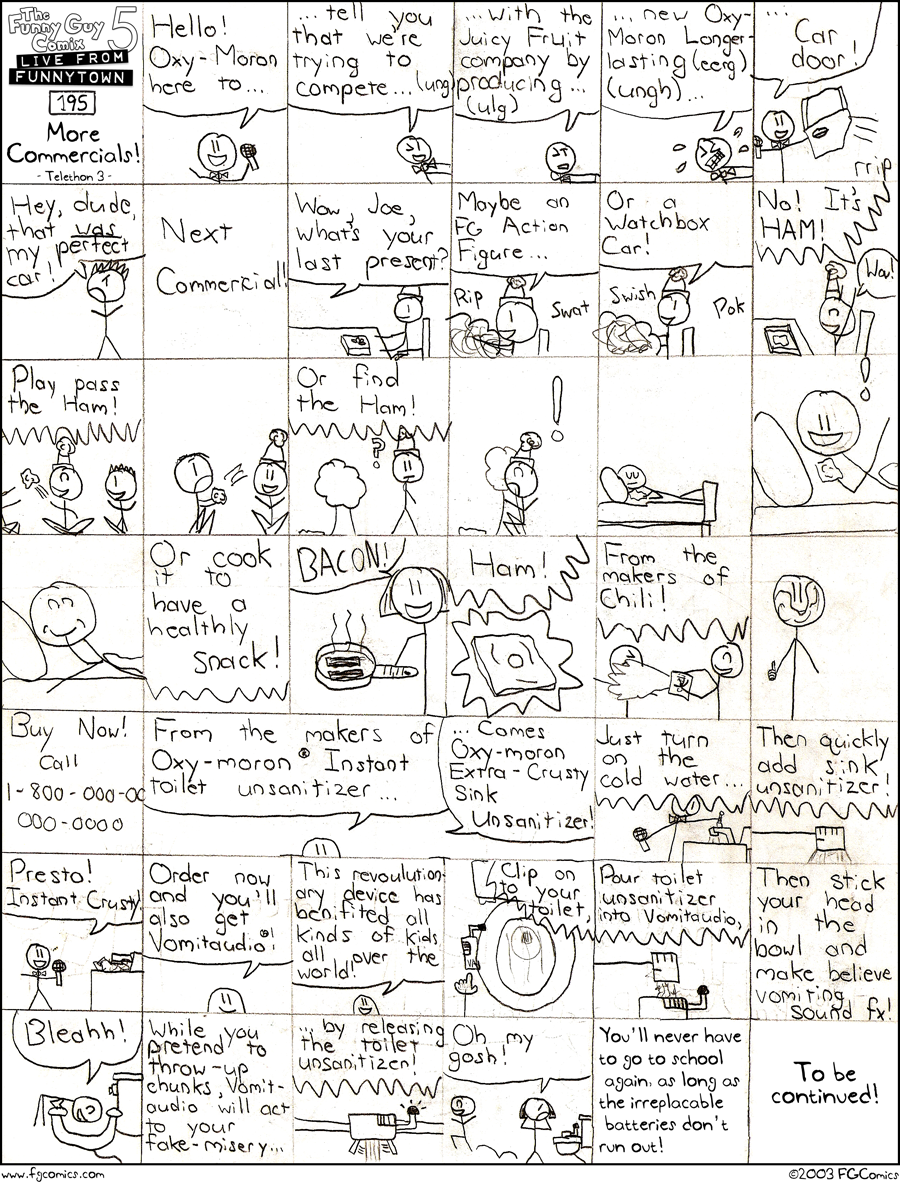 The
Funny Guy
Comix 5
LIVE FROM
FUNNYTOWN
195
More
Commercials!
- Telethon 3 -
Hello!
Oxy-Moron
here to...
... tell you
that we're
trying to
compete... (ung)
... with the
Juicy Fruit
company by
producing...
(ulg)
... new Oxy-
Moron Longer-
lasting (eerg)
(ungh)...
...
Car
door!
rrip
Hey, dude,
that was
my perfect
car!
Next
Commercial!
Wow, Joe,
what's your
last present?
Maybe an
FG Action
Figure...
Rip
Swat
Or a
Watchbox
Car!
Swish
Pok
No! It's
HAM!
Wow!
!
Play pass
the Ham!
Or find
the Ham!
?
!
Or cook
it to
have a
healthly
snack!
BACON!
Ham!
From the
makers of
Chili!
Buy Now!
Call
1-800-000-00
000-0000
From the makers of
Oxy-moron® Instant
toilet unsanitizer...
... Comes
Oxy-moron
Extra-Crusty
Sink
Unsanitizer!
Just turn
on the
cold water...
Then quickly
add sink
unsanitizer!
Presto!
Instant Crusty
Order now
and you'll
also get
Vomitaudio®!
This revoulution-
ary device has
benifited all
kinds of kids
all over the
world!
Clip on
to your
toilet,
Pour toilet
unsanitizer
into Vomitaudio,
Then stick
your head
in the
bowl and
make believe
vomiting
sound fx!
Bleahh!
While you
pretend to
throw-up
chunks, Vomit-
audio will act
to your
fake-misery...
... by releasing
the toilet
unsanitizer!
Oh my
gosh!
You'll never have
to go to school
again, as long as
the irreplacable
batteries don't
run out!
To be
continued!
www.fgcomics.com
©2003 FGComics